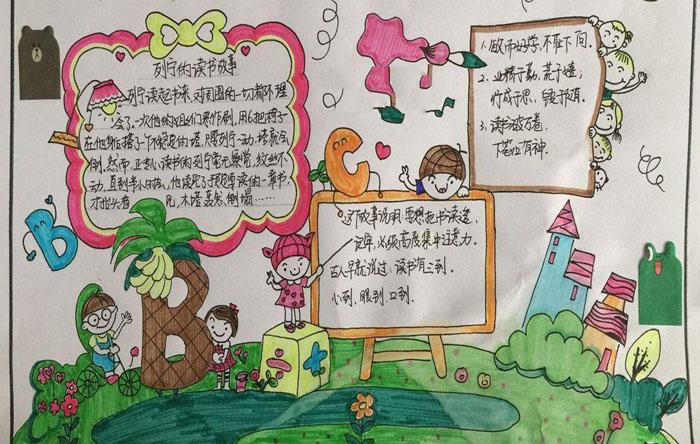 列宁的读书故事
列宁读起书来,对周围的一切都不理
会了。一次他的姐妹们恶作剧,用6把椅子
在他身后搭了一个不稳定的塔,只要列宁一动,塔就会
倒。然而,正专心读书的列宁毫无察觉,纹丝不
动。直到半小时后,他读完了预定要读的一章书,
才抬头看 见,木塔轰然倒塌……
B
C
B
÷
+
这个故事说明,要想把书读透,
记牢,必须高度集中注意力。
古人早就说过:读书有三到。
心到、眼到、口到。
1、敏而好学,不耻下问。
2、业精于勤,荒于嬉;
行成于思,毁于随。
3、读书破万卷,
下笔如有神。